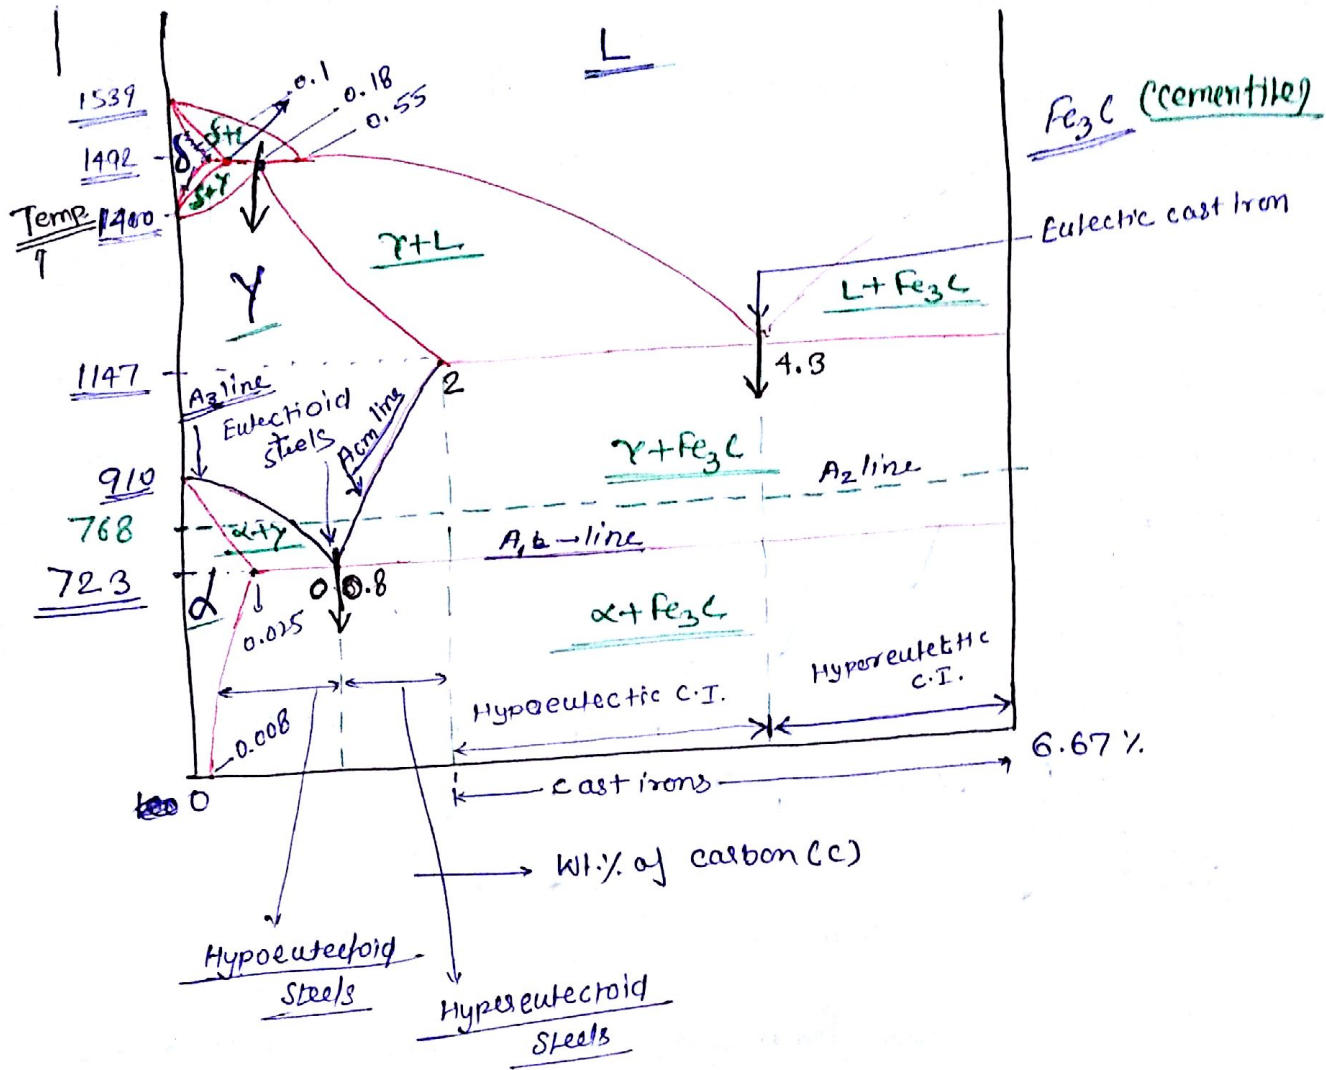 L
1539
0.1
0.18
0.55
Fe3C (Cementite)
δ+L
1492
δ
δ+γ
Temp
1400
γ+L
Eutectic cast Iron
γ
L+Fe3C
1147
4.3
2
A3 line
Eutectioid
steels
Acm line
γ+Fe3C
A2 line
910
768
α+γ
A1 → line
723
0.8
α
0.025
α+Fe3C
Hypereutectic
C.I.
Hypoeutectic C.I.
0.008
6.67 %
0
cast irons
Wt.% of carbon (C)
Hypoeutectoid
Steels
Hypereutectoid
Steels